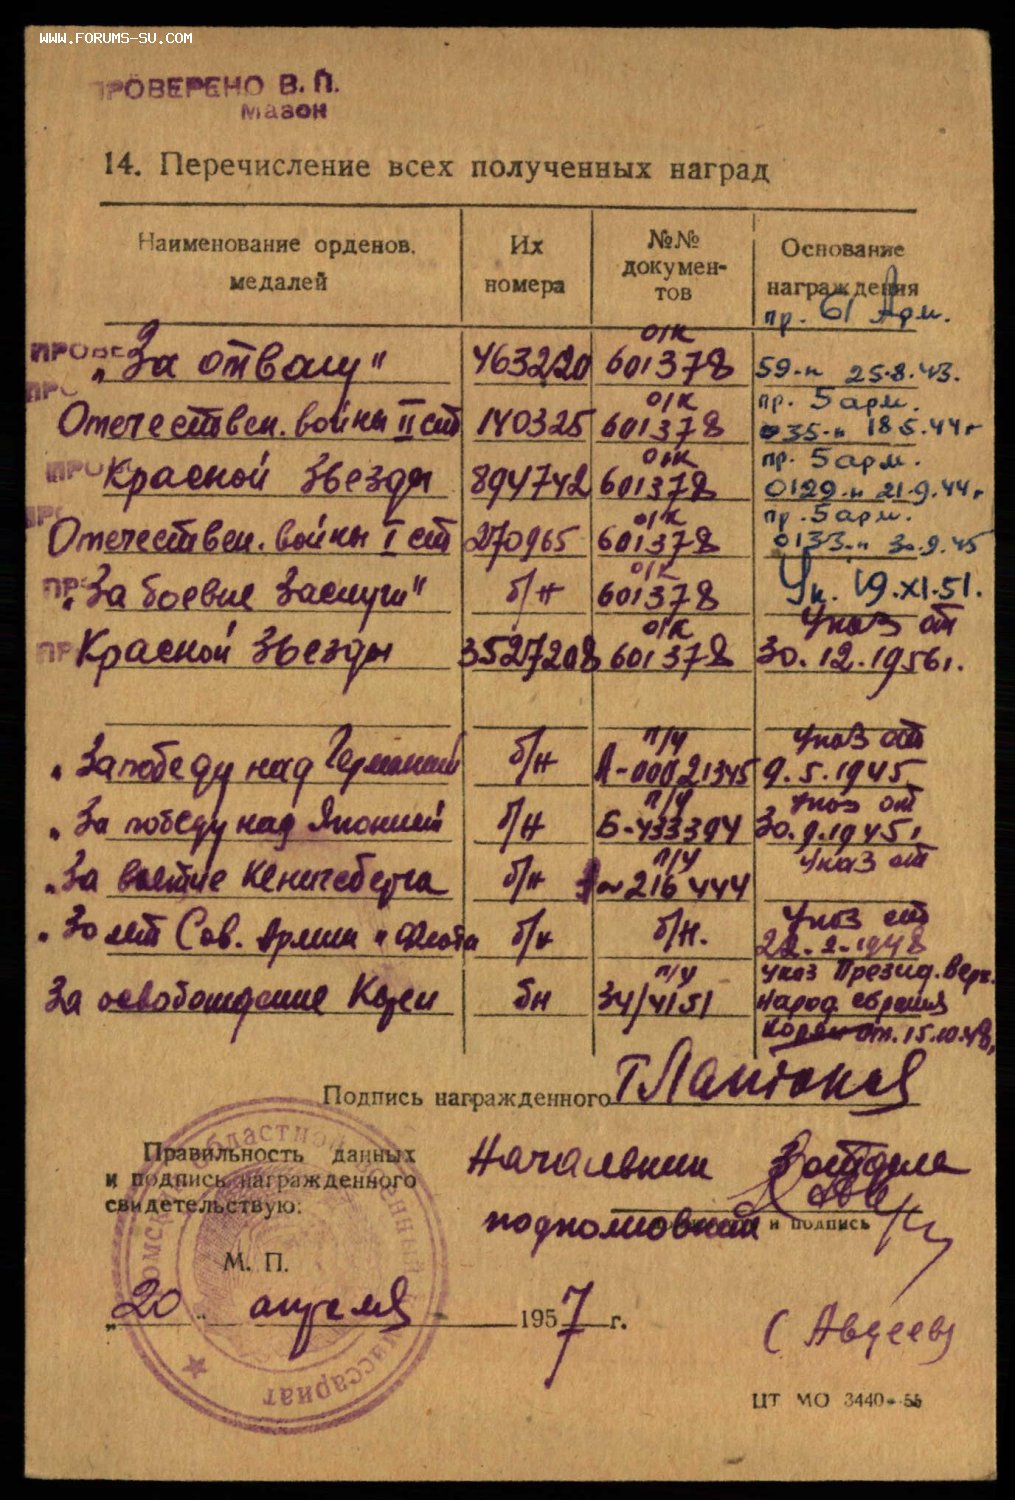 WWW.FORUMS-SU.COM
ПРОВЕРЕНО В. П.
Мазон
14. Перечисление всех полученных наград
Наименование орденов, медалей
Их номера
№№ докумен-тов
Основание награждения
пр. 61 Арм.
"За отвагу" 463220 о/к 601378 59-н 25.8.43.
пр. 5 арм.
Отечествен. войны II ст 140325 о/к 601378 035-н 18.5.44г
пр. 5 арм.
Красной Звезды 894742 о/к 601378 0129-н 21.9.44г
пр. 5 арм.
Отечествен. войны I ст 270965 о/к 601378 0133-н 30.9.45
"За боевые Заслуги" б/н о/к 601378 Ук. 19.XI.51.
Указ от
Красной Звезды 3527208 о/к 601378 30.12.1956г.
п/у Указ от
"За победу над Германией б/н А-00021345 9.5.1945
п/у Указ от
"За победу над Японией б/н Б-433394 30.9.1945г
п/у Указ от
"За взятие Кенигсберга б/н 216444
Указ от
"30 лет Сов. Армии и Флота б/н б/н. 22.2.1948
п/у указ Презид. Верх.
За освобождение Кореи бн 34/4151 народ собрания
Кореи от. 15.10.48г
Подпись награжденного
Правильность данных
и подпись награжденного
свидетельствую:
Начальник
подполковник
и подпись
М. П.
"20" апреля 1957 г.
(Авдеев)
омский областной военный комиссариат
ЦТ МО 3440-55